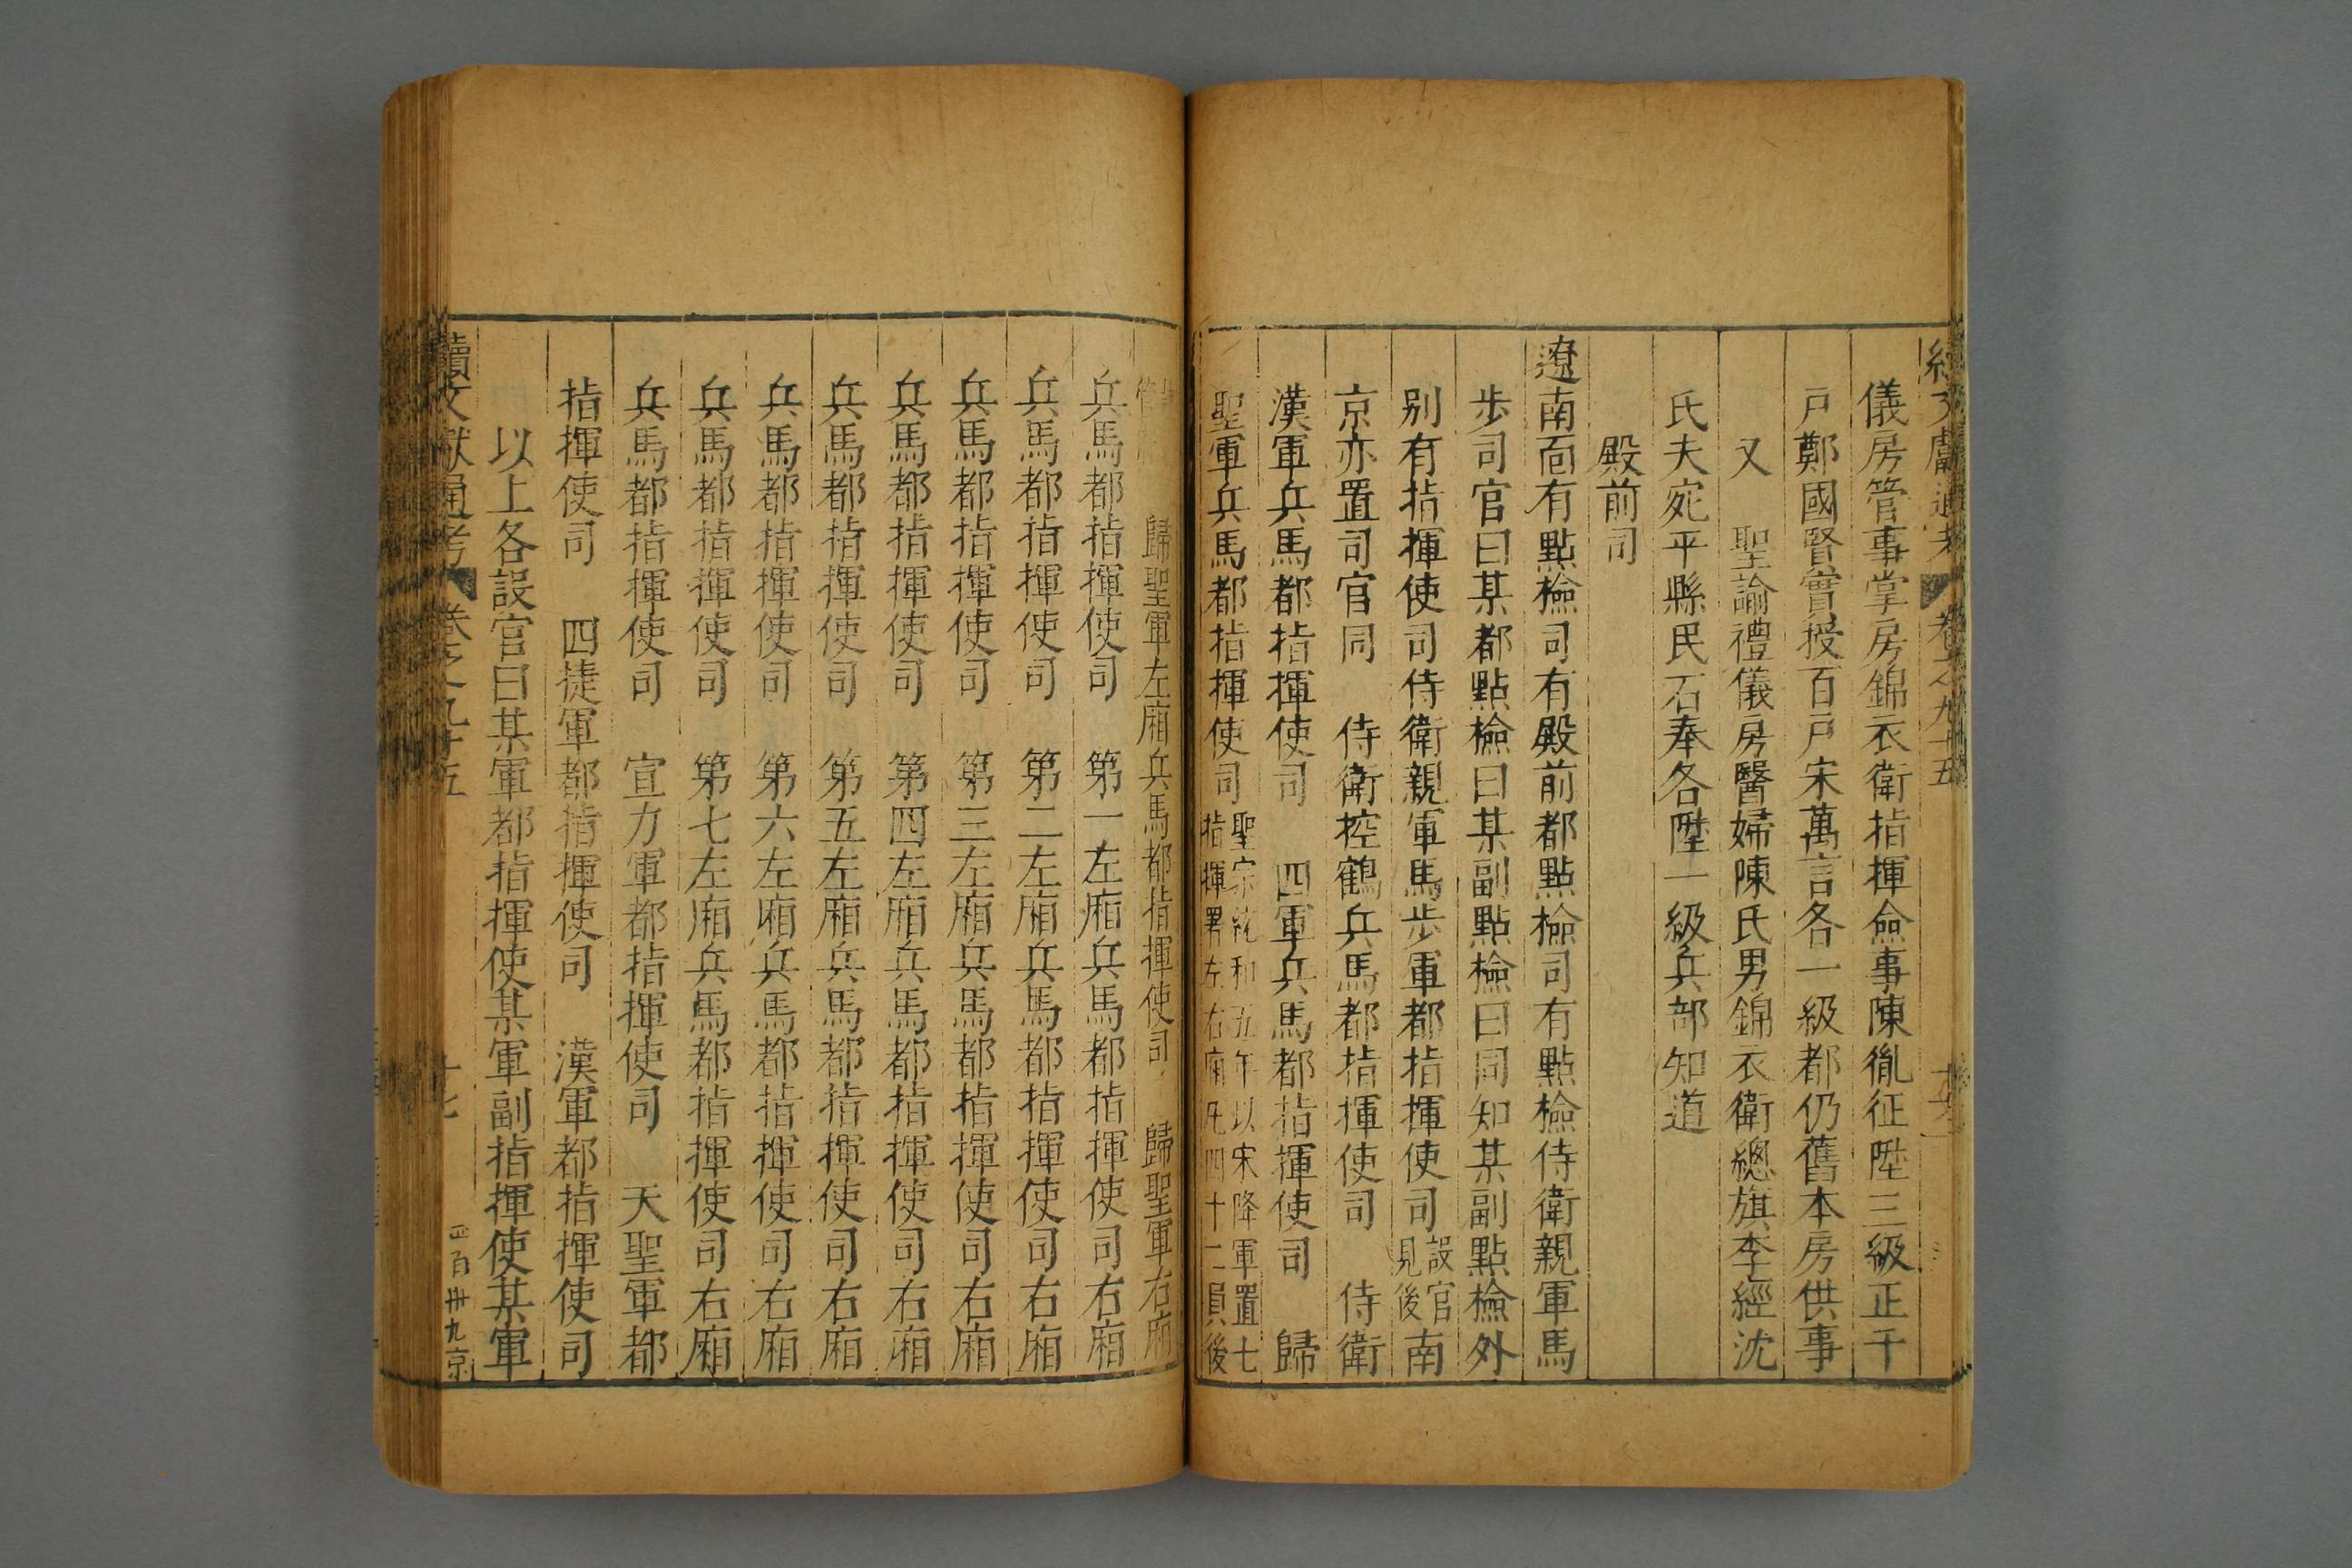 續文獻通考 卷之九十五
儀房管事掌房錦衣衛指揮僉事陳胤征陞三級正千
戶鄭國賢實授百戶宋萬言各一級都仍舊本房供事
又 聖諭禮儀房醫婦陳氏男錦衣衛總旗李經沈
氏夫宛平縣民石奉各陞一級兵部知道
殿前司
遼南面有點檢司有殿前都點檢司有點檢侍衛親軍馬
步司官曰某都點檢曰某副點檢曰同知某副點檢外
別有指揮使司侍衛親軍馬步軍都指揮使司設官見後南
京亦置司官同 侍衛控鶴兵馬都指揮使司 侍衛
漢軍兵馬都指揮使司 四軍兵馬都指揮使司 歸
聖軍兵馬都指揮使司聖宗統和五年以宋降軍置七指揮署左右廂凡四十二員後
歸聖軍左廂兵馬都指揮使司 歸聖軍右廂
兵馬都指揮使司 第一左廂兵馬都指揮使司右廂
兵馬都指揮使司 第二左廂兵馬都指揮使司右廂
兵馬都指揮使司 第三左廂兵馬都指揮使司右廂
兵馬都指揮使司 第四左廂兵馬都指揮使司右廂
兵馬都指揮使司 第五左廂兵馬都指揮使司右廂
兵馬都指揮使司 第六左廂兵馬都指揮使司右廂
兵馬都指揮使司 第七左廂兵馬都指揮使司右廂
兵馬都指揮使司 宣力軍都指揮使司 天聖軍都
指揮使司 四捷軍都指揮使司 漢軍都指揮使司
以上各設官曰某軍都指揮使某軍副指揮使某軍
續文獻通考 卷之九十五 十七 卅九京